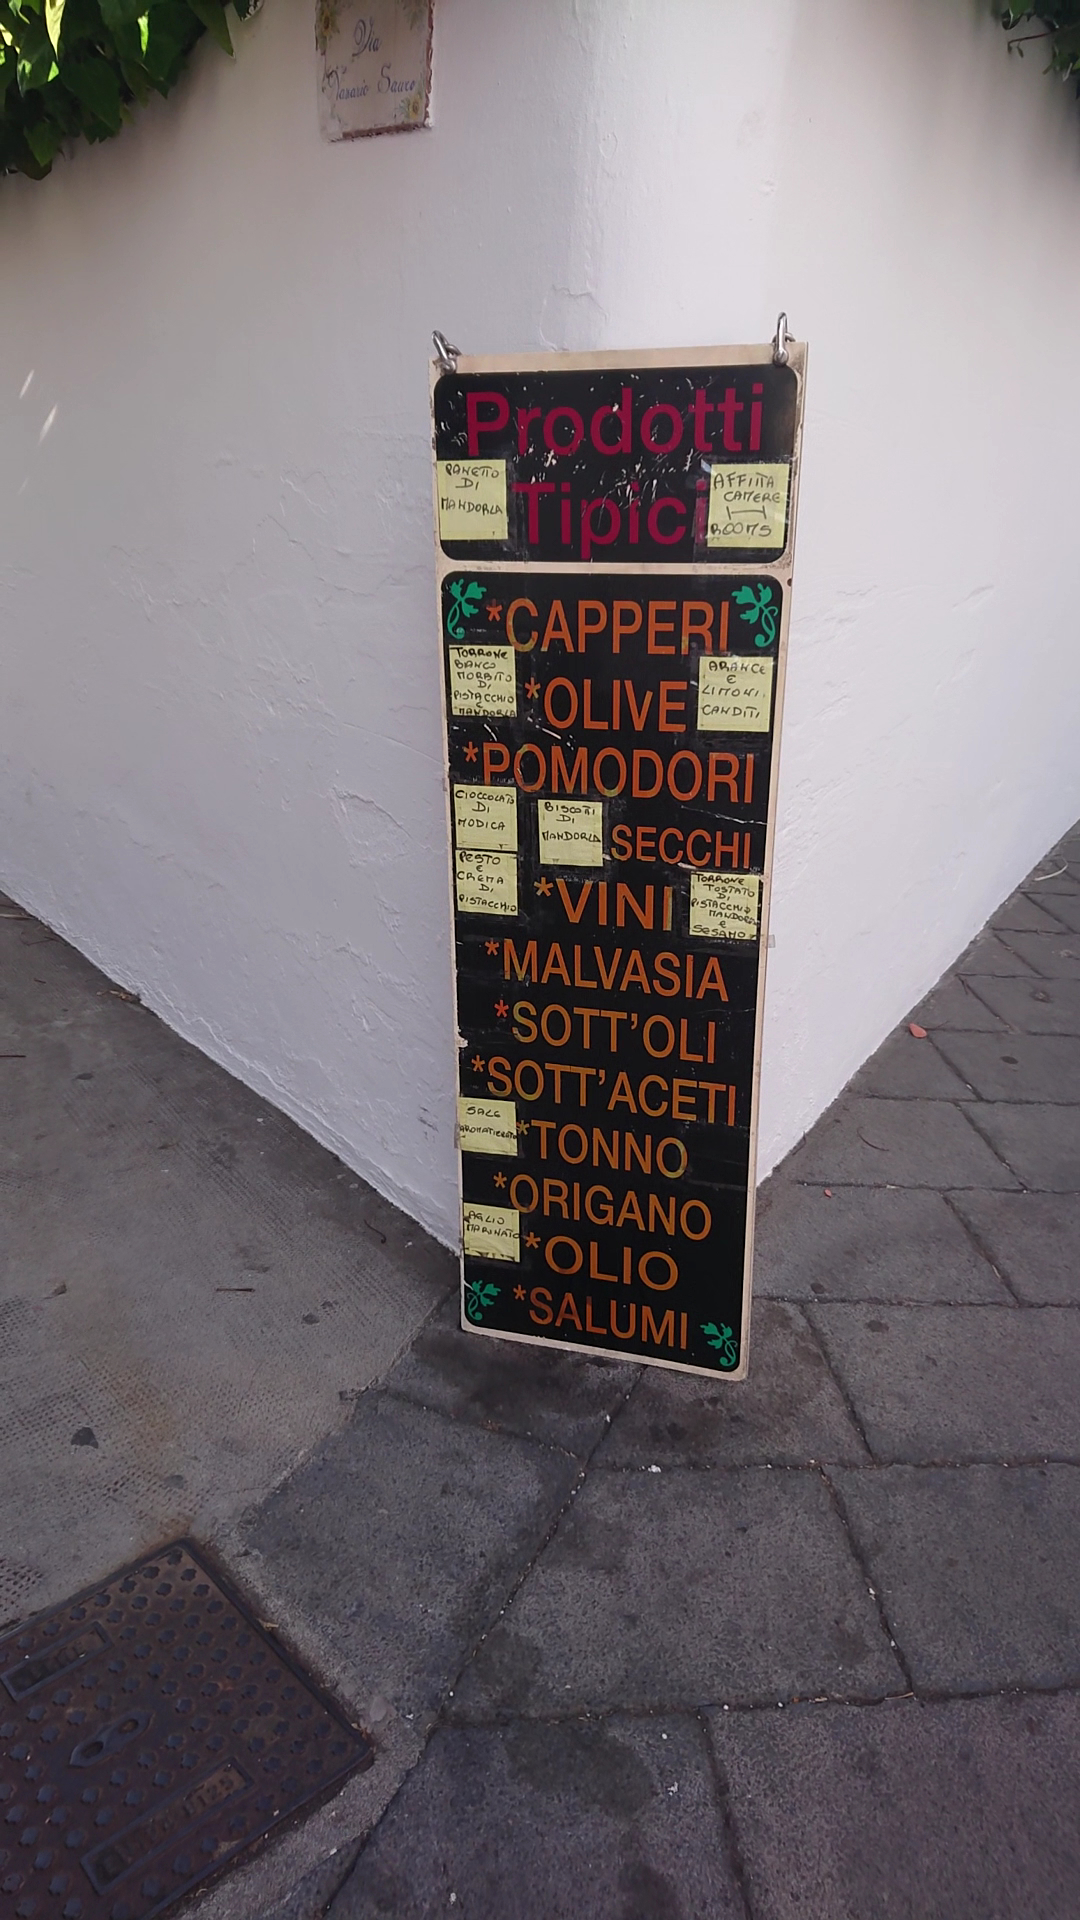 Via
Nasario Sauro
Prodotti
Tipici
PANETTO
DI
MANDORLA
AFFITTA
CAMERE
ROOMS
*CAPPERI
TORRONE
BIANCO
MORBITO
DI
PISTACCHIO
E
MANDORLA
*OLIVE
ARANCE
E
LIMONI
CANDITI
*POMODORI
SECCHI
CIOCCOLATO
DI
MODICA
BISCOTTI
DI
MANDORLA
PESTO
E
CREMA
DI
PISTACCHIO
*VINI
TORRONE
TOSTATO
DI
PISTACCHIO
MANDORLA
e
SESAMO
*MALVASIA
*SOTT'OLI
*SOTT'ACETI
SALE
AROMATIZZATO
*TONNO
*ORIGANO
AGLIO
MARINATO
*OLIO
*SALUMI